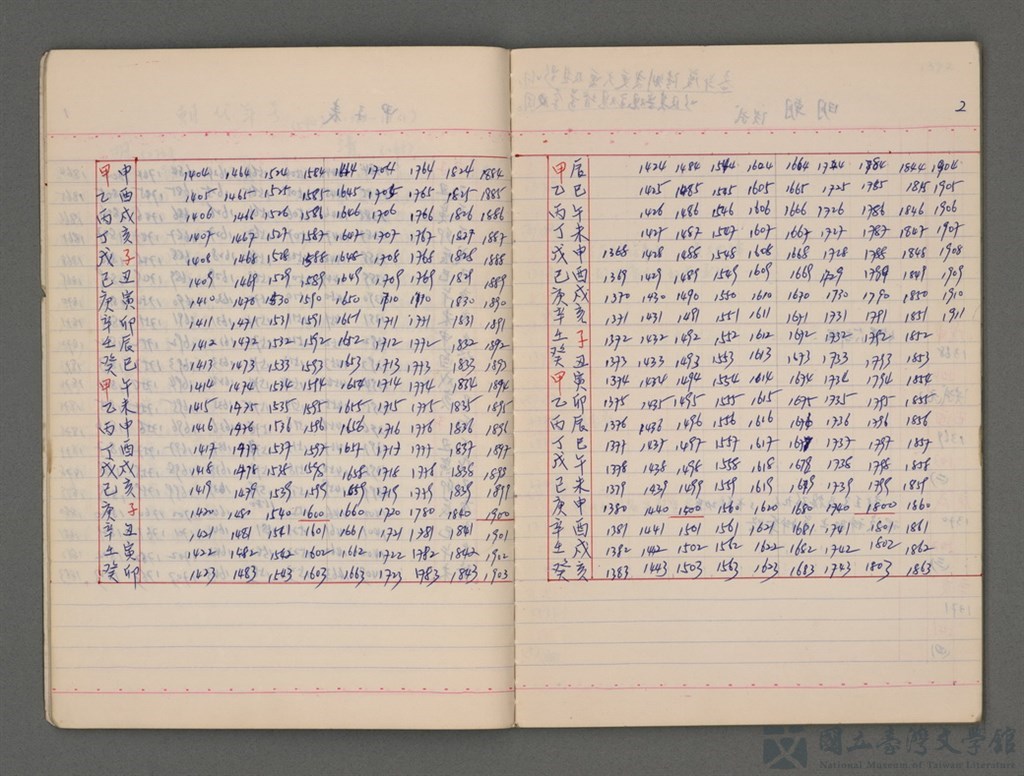 2
甲 申 1404 1464 1524 1584 1644 1704 1764 1824 1884
乙 酉 1405 1465 1525 1585 1645 1705 1765 1825 1885
丙 戌 1406 1466 1526 1586 1646 1706 1766 1826 1886
丁 亥 1407 1467 1527 1587 1647 1707 1767 1827 1887
戊 子 1408 1468 1528 1588 1648 1708 1768 1828 1888
己 丑 1409 1469 1529 1589 1649 1709 1769 1829 1889
庚 寅 1410 1470 1530 1590 1650 1710 1770 1830 1890
辛 卯 1411 1471 1531 1591 1651 1711 1771 1831 1891
壬 辰 1412 1472 1532 1592 1652 1712 1772 1832 1892
癸 巳 1413 1473 1533 1593 1653 1713 1773 1833 1893
甲 午 1414 1474 1534 1594 1654 1714 1774 1834 1894
乙 未 1415 1475 1535 1595 1655 1715 1775 1835 1895
丙 申 1416 1476 1536 1596 1656 1716 1776 1836 1896
丁 酉 1417 1477 1537 1597 1657 1717 1777 1837 1897
戊 戌 1418 1478 1538 1598 1658 1718 1778 1838 1898
己 亥 1419 1479 1539 1599 1659 1719 1779 1839 1899
庚 子 1420 1480 1540 1600 1660 1720 1780 1840 1900
辛 丑 1421 1481 1541 1601 1661 1721 1781 1841 1901
壬 寅 1422 1482 1542 1602 1662 1722 1782 1842 1902
癸 卯 1423 1483 1543 1603 1663 1723 1783 1843 1903
甲 辰 1424 1484 1544 1604 1664 1724 1784 1844 1904
乙 巳 1425 1485 1545 1605 1665 1725 1785 1845 1905
丙 午 1426 1486 1546 1606 1666 1726 1786 1846 1906
丁 未 1427 1487 1547 1607 1667 1727 1787 1847 1907
戊 申 1368 1428 1488 1548 1608 1668 1728 1788 1848 1908
己 酉 1369 1429 1489 1549 1609 1669 1729 1789 1849 1909
庚 戌 1370 1430 1490 1550 1610 1670 1730 1790 1850 1910
辛 亥 1371 1431 1491 1551 1611 1671 1731 1791 1851 1911
壬 子 1372 1432 1492 1552 1612 1672 1732 1792 1852
癸 丑 1373 1433 1493 1553 1613 1673 1733 1793 1853
甲 寅 1374 1434 1494 1554 1614 1674 1734 1794 1854
乙 卯 1375 1435 1495 1555 1615 1675 1735 1795 1855
丙 辰 1376 1436 1496 1556 1616 1676 1736 1796 1856
丁 巳 1377 1437 1497 1557 1617 1677 1737 1797 1857
戊 午 1378 1438 1498 1558 1618 1678 1738 1798 1858
己 未 1379 1439 1499 1559 1619 1679 1739 1799 1859
庚 申 1380 1440 1500 1560 1620 1680 1740 1800 1860
辛 酉 1381 1441 1501 1561 1621 1681 1741 1801 1861
壬 戌 1382 1442 1502 1562 1622 1682 1742 1802 1862
癸 亥 1383 1443 1503 1563 1623 1683 1743 1803 1863
國立臺灣文學館
National Museum of Taiwan Literature